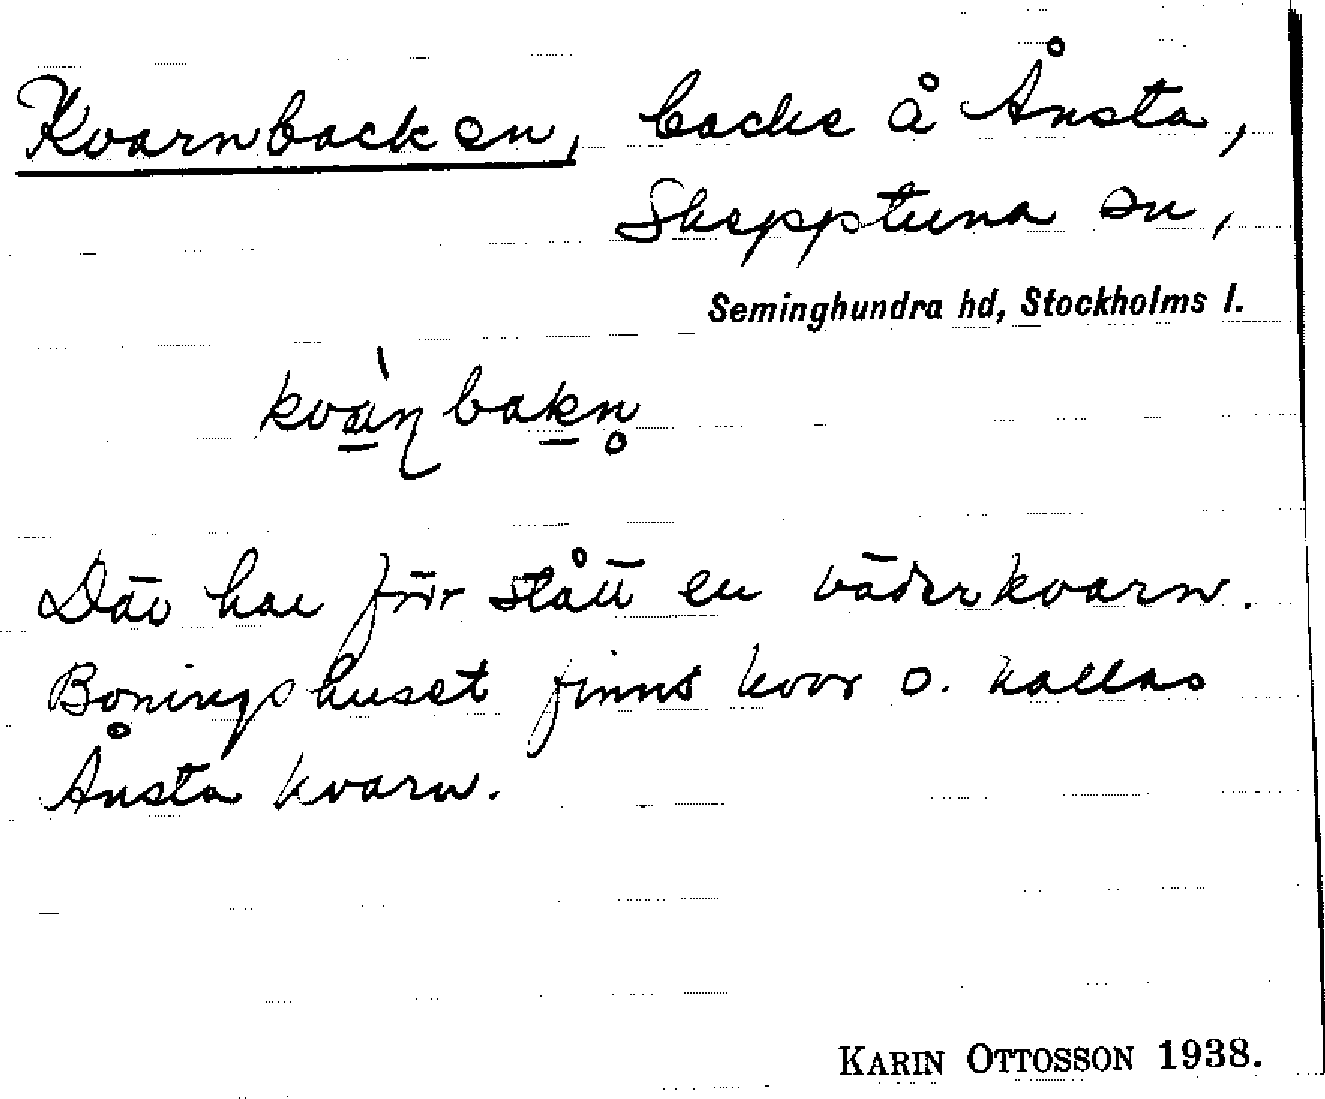 Kvarnbacken, backe å Ånsta,
Skepptuna sn,
Seminghundra hd, Stockholms l.
kvàɳbakn̥
Där har förr stått en väderkvarn.
Boningshuset finns kvar o. kallas
Ånsta kvarn.
KARIN OTTOSSON 1938.